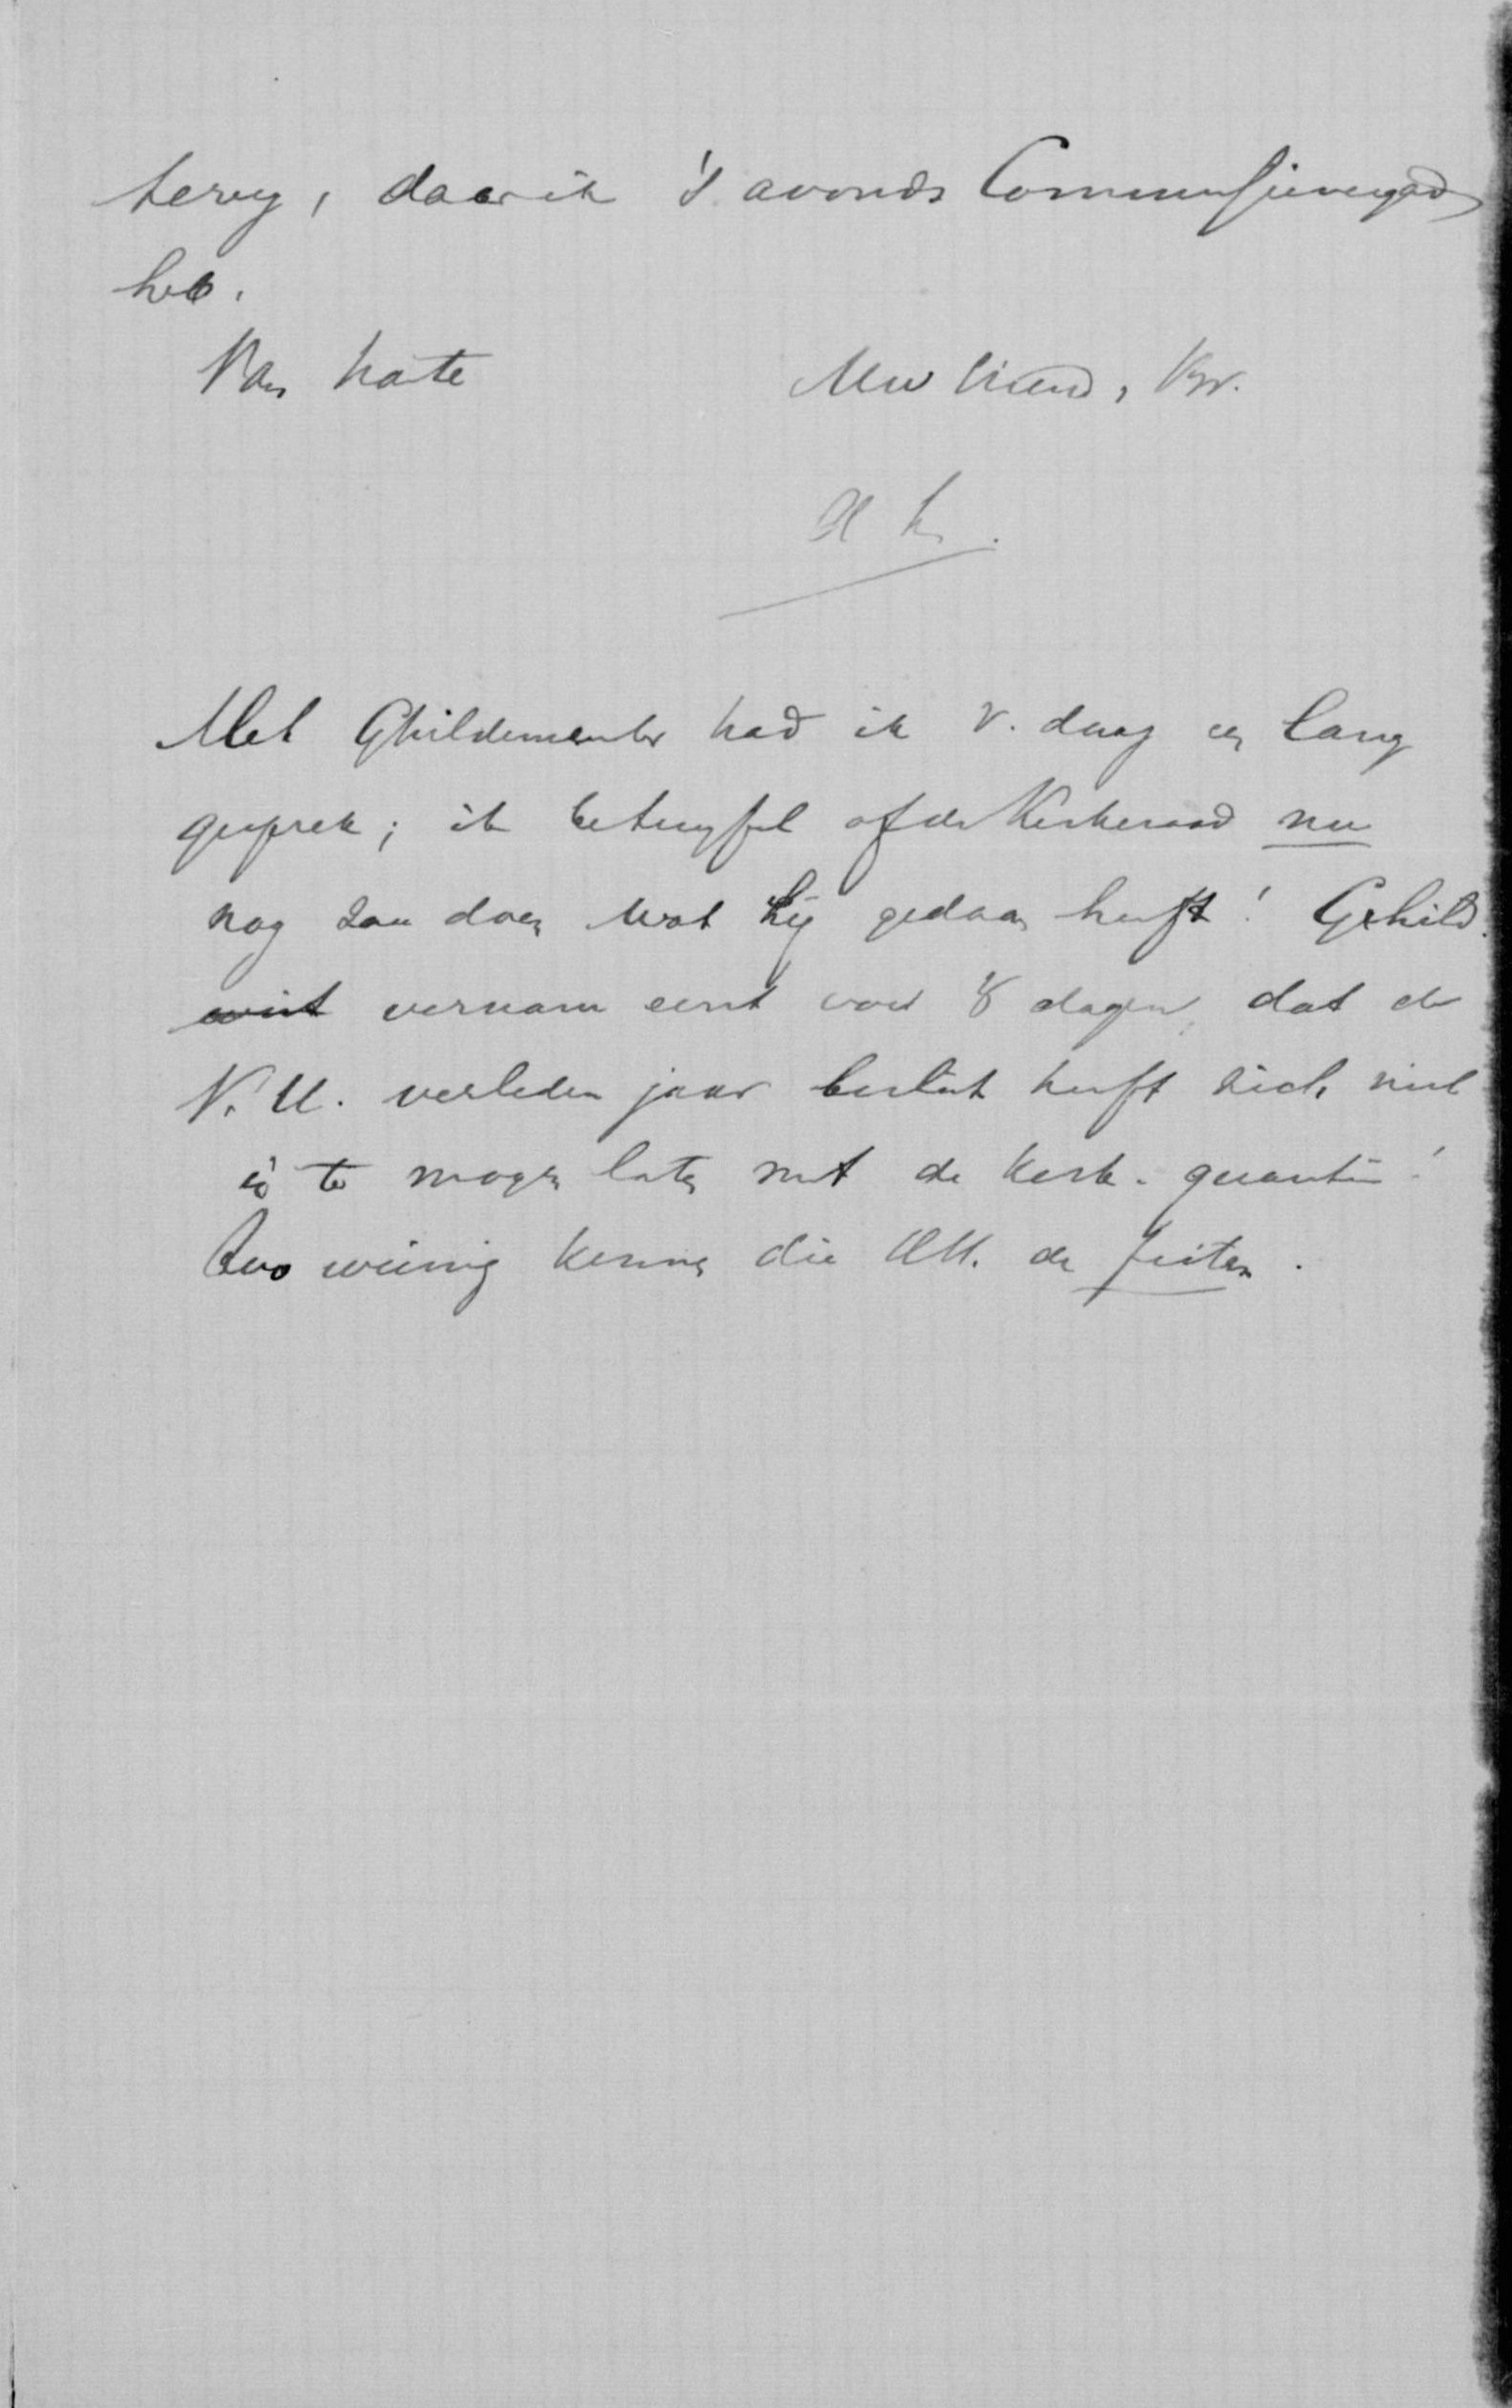 terug, daar ik 's avonds Commissievergad
heb.
Van harte Uw vriend, Br.
A K.
Met Ghildemeester had ik v. daag een lang
gesprek; ik betwyfel of de Kerkeraad nu
nog zou doen wat hij gedaan heeft! Gehild.
wist vernam eerst voor 8 dagen, dat de
V. U. verleden jaar besluit heeft zich niet
in te mogen laten met de kerk. quaestie!
Zoo weinig kennen die de feiten.